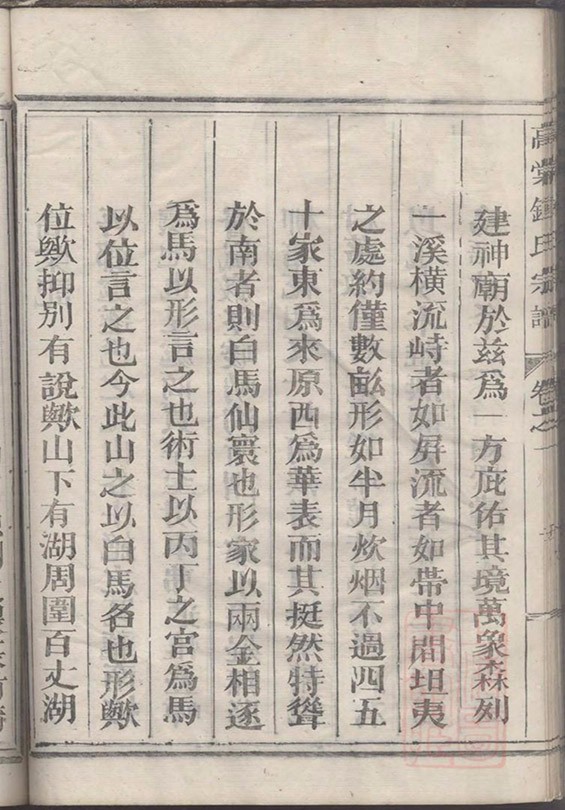 高棠鍾氏宗譜 卷之一
建神廟於茲爲一方庇佑其境萬象森列
一溪橫流峙者如屏流者如帶中間坦夷
之處約僅數畝形如半月炊烟不過四五
十家東爲來原西爲華表而其挺然特聳
於南者則白馬仙寰也形家以兩金相逐
爲馬以形言之也術士以丙丁之宮爲馬
以位言之也今此山之以白馬名也形歟
位歟抑別有說歟山下有湖周圍百丈湖